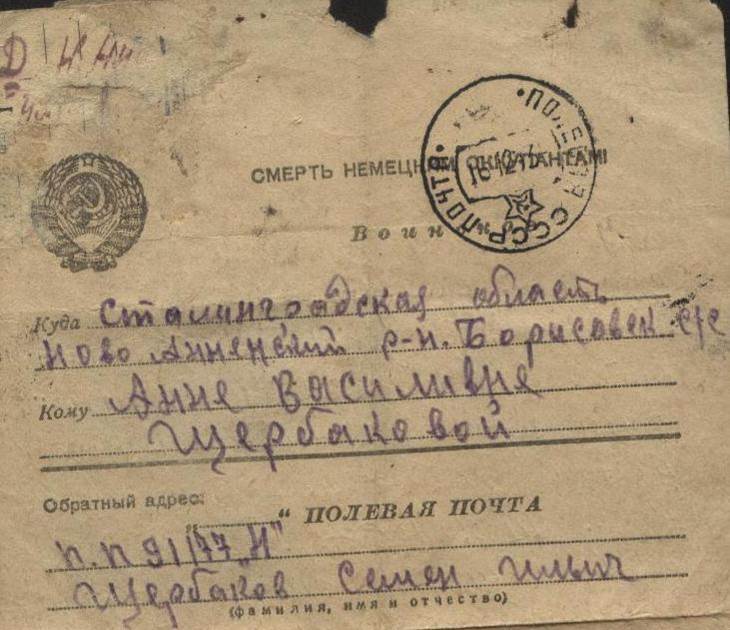 СМЕРТЬ НЕМЕЦКИМ ОККУПАНТАМ!
ПОЛЕВАЯ ПОЧТА
СССР
Воин
Куда Сталинградская область
Ново Анненский р-н. Борисовск. с/с
Кому Анне Василивне
Щербаковой
Обратный адрес:
" " ПОЛЕВАЯ ПОЧТА
п.п 91177 „И"
Щербаков Семен Ильич
(фамилия, имя и отчество)